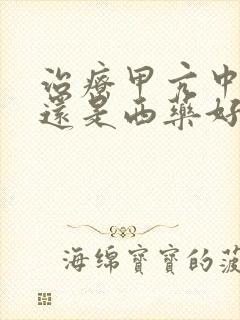 治療甲亢中
還是西藥好
海绵寶寶的菠